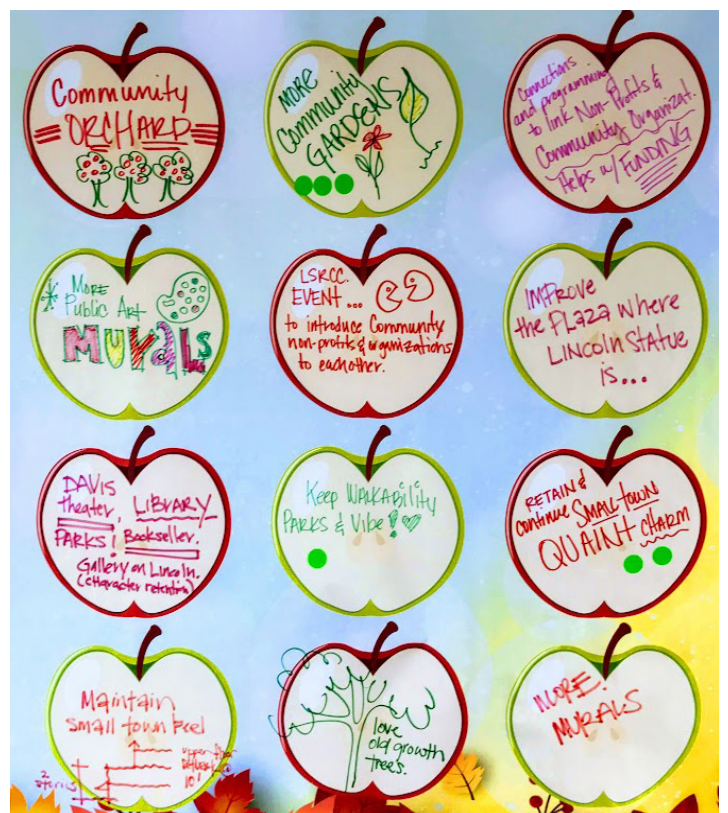 Community
ORCHARD
MORE
Community
GARDENS
Connections
and programming
to link Non-Profits &
Community Organizat.
Helps w/ FUNDING
More
Public Art
MURALS
LSRCC.
EVENT...
to introduce Community
non-profits & organizations
to eachother.
IMPROVE
the PLAZA where
LINCOLN STATUE
is...
DAVIS
theater, LIBRARY
PARKS! Bookseller.
Gallery on Lincoln.
(character retention)
Keep WALKABILITY
PARKS & Vibe!
RETAIN &
continue SMALL TOWN
QUAINT CHARM
Maintain
small town feel
upper floor
setback
10'
2
stories
love
old growth
trees.
MORE.
MURALS